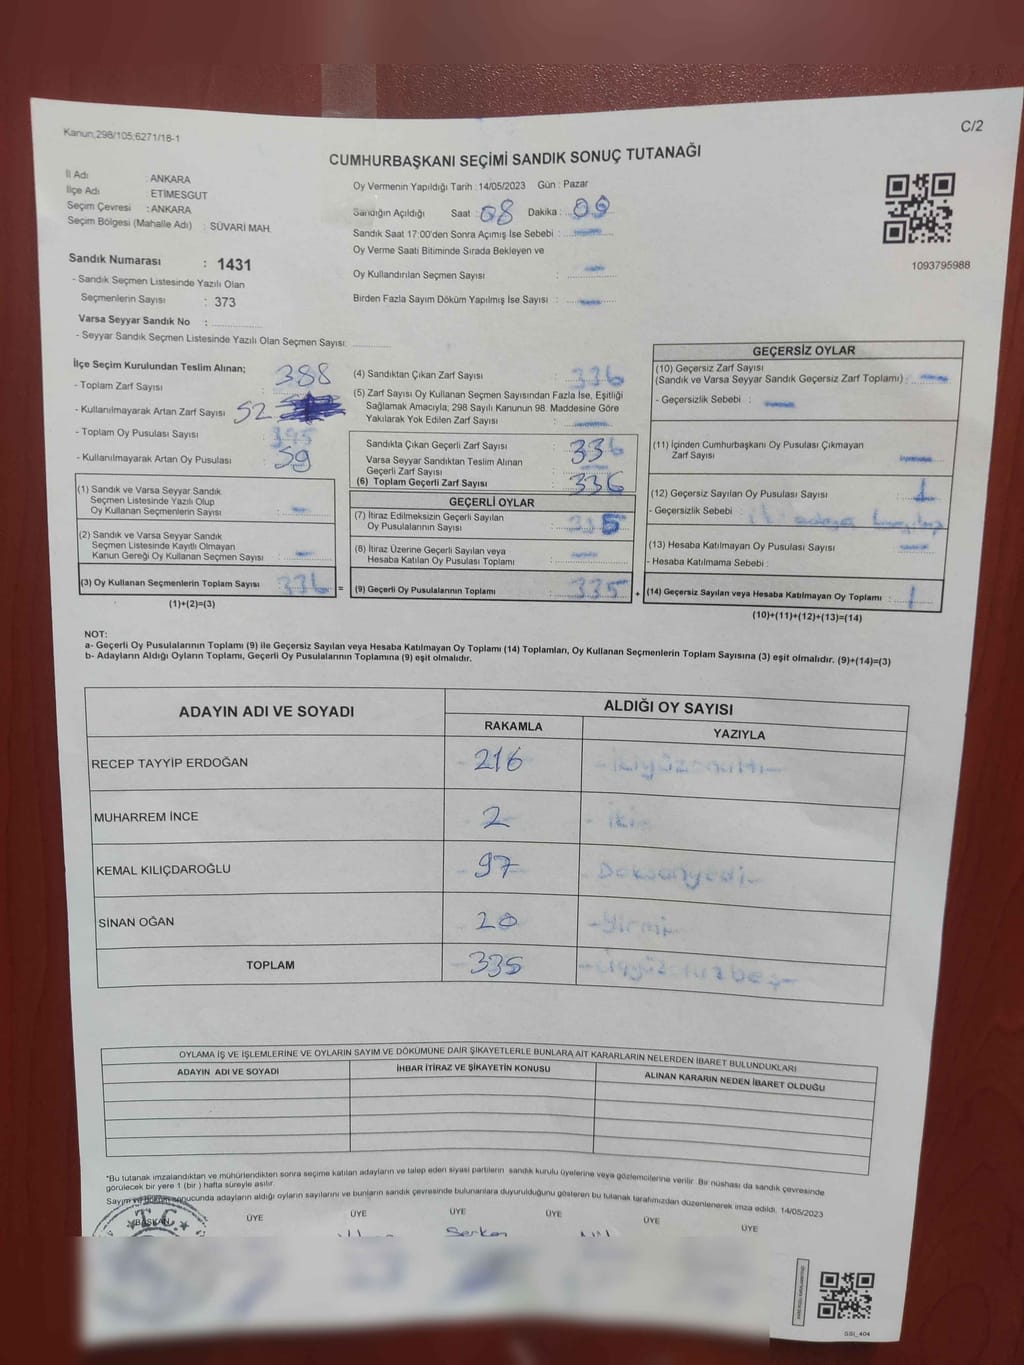 Kanun;298/105;6271/18-1
C/2
CUMHURBAŞKANI SEÇİMİ SANDIK SONUÇ TUTANAĞI
İl Adı : ANKARA
İlçe Adı : ETİMESGUT
Seçim Çevresi : ANKARA
Seçim Bölgesi (Mahalle Adı) : SÜVARİ MAH.
Sandık Numarası : 1431
- Sandık Seçmen Listesinde Yazılı Olan
Seçmenlerin Sayısı : 373
Varsa Seyyar Sandık No :
- Seyyar Sandık Seçmen Listesinde Yazılı Olan Seçmen Sayısı:
Oy Vermenin Yapıldığı Tarih : 14/05/2023 Gün : Pazar
Sandığın Açıldığı Saat : 08 Dakika : 09
Sandık Saat 17:00'den Sonra Açımış İse Sebebi :
Oy Verme Saati Bitiminde Sırada Bekleyen ve
Oy Kullandırılan Seçmen Sayısı :
Birden Fazla Sayım Döküm Yapılmış İse Sayısı :
1093795988
İlçe Seçim Kurulundan Teslim Alınan;
- Toplam Zarf Sayısı : 388
- Kullanılmayarak Artan Zarf Sayısı 52
- Toplam Oy Pusulası Sayısı : 395
- Kullanılmayarak Artan Oy Pusulası : 59
(1) Sandık ve Varsa Seyyar Sandık
Seçmen Listesinde Yazılı Olup
Oy Kullanan Seçmenlerin Sayısı :
(2) Sandık ve Varsa Seyyar Sandık
Seçmen Listesinde Kayıtlı Olmayan
Kanun Gereği Oy Kullanan Seçmen Sayısı :
(3) Oy Kullanan Seçmenlerin Toplam Sayısı : 336 =
(1)+(2)=(3)
(4) Sandıktan Çıkan Zarf Sayısı : 336
(5) Zarf Sayısı Oy Kullanan Seçmen Sayısından Fazla İse, Eşitliği
Sağlamak Amacıyla; 298 Sayılı Kanunun 98. Maddesine Göre
Yakılarak Yok Edilen Zarf Sayısı :
Sandıkta Çıkan Geçerli Zarf Sayısı : 336
Varsa Seyyar Sandıktan Teslim Alınan
Geçerli Zarf Sayısı :
(6) Toplam Geçerli Zarf Sayısı : 336
GEÇERLİ OYLAR
(7) İtiraz Edilmeksizin Geçerli Sayılan
Oy Pusulalarının Sayısı : 335
(8) İtiraz Üzerine Geçerli Sayılan veya
Hesaba Katılan Oy Pusulası Toplamı :
(9) Geçerli Oy Pusulalarının Toplamı : 335 +
GEÇERSİZ OYLAR
(10) Geçersiz Zarf Sayısı
(Sandık ve Varsa Seyyar Sandık Geçersiz Zarf Toplamı) :
- Geçersizlik Sebebi :
(11) İçinden Cumhurbaşkanı Oy Pusulası Çıkmayan
Zarf Sayısı :
(12) Geçersiz Sayılan Oy Pusulası Sayısı : 1
- Geçersizlik Sebebi :
(13) Hesaba Katılmayan Oy Pusulası Sayısı :
- Hesaba Katılmama Sebebi :
(14) Geçersiz Sayılan veya Hesaba Katılmayan Oy Toplamı : 1
(10)+(11)+(12)+(13)=(14)
NOT:
a- Geçerli Oy Pusulalarının Toplamı (9) ile Geçersiz Sayılan veya Hesaba Katılmayan Oy Toplamı (14) Toplamları, Oy Kullanan Seçmenlerin Toplam Sayısına (3) eşit olmalıdır. (9)+(14)=(3)
b- Adayların Aldığı Oyların Toplamı, Geçerli Oy Pusulalarının Toplamına (9) eşit olmalıdır.
ADAYIN ADI VE SOYADI
ALDIĞI OY SAYISI
RAKAMLA YAZIYLA
RECEP TAYYİP ERDOĞAN 216 - ikiyüzonaltı -
MUHARREM İNCE 2 - iki -
KEMAL KILIÇDAROĞLU - 97 - Doksanyedi -
SİNAN OĞAN - 20 - - Yirmi -
TOPLAM - 335 - Üçyüzotuzbeş -
OYLAMA İŞ VE İŞLEMLERİNE VE OYLARIN SAYIM VE DÖKÜMÜNE DAİR ŞİKAYETLERLE BUNLARA AİT KARARLARIN NELERDEN İBARET BULUNDUKLARI
ADAYIN ADI VE SOYADI İHBAR İTİRAZ VE ŞİKAYETİN KONUSU ALINAN KARARIN NEDEN İBARET OLDUĞU
*Bu tutanak imzalandıktan ve mühürlendikten sonra seçime katılan adayların ve talep eden siyasi partilerin sandık kurulu üyelerine veya gözlemcilerine verilir. Bir nüshası da sandık çevresinde
görülecek bir yere 1 (bir ) hafta süreyle asılır.
Sayım ve döküm sonucunda adayların aldığı oyların sayılarını ve bunların sandık çevresinde bulunanlara duyurulduğunu gösteren bu tutanak tarafımızdan düzenlenerek imza edildi. 14/05/2023
BAŞKAN ÜYE ÜYE ÜYE ÜYE ÜYE ÜYE
T.C.
Serkan
SSI_404